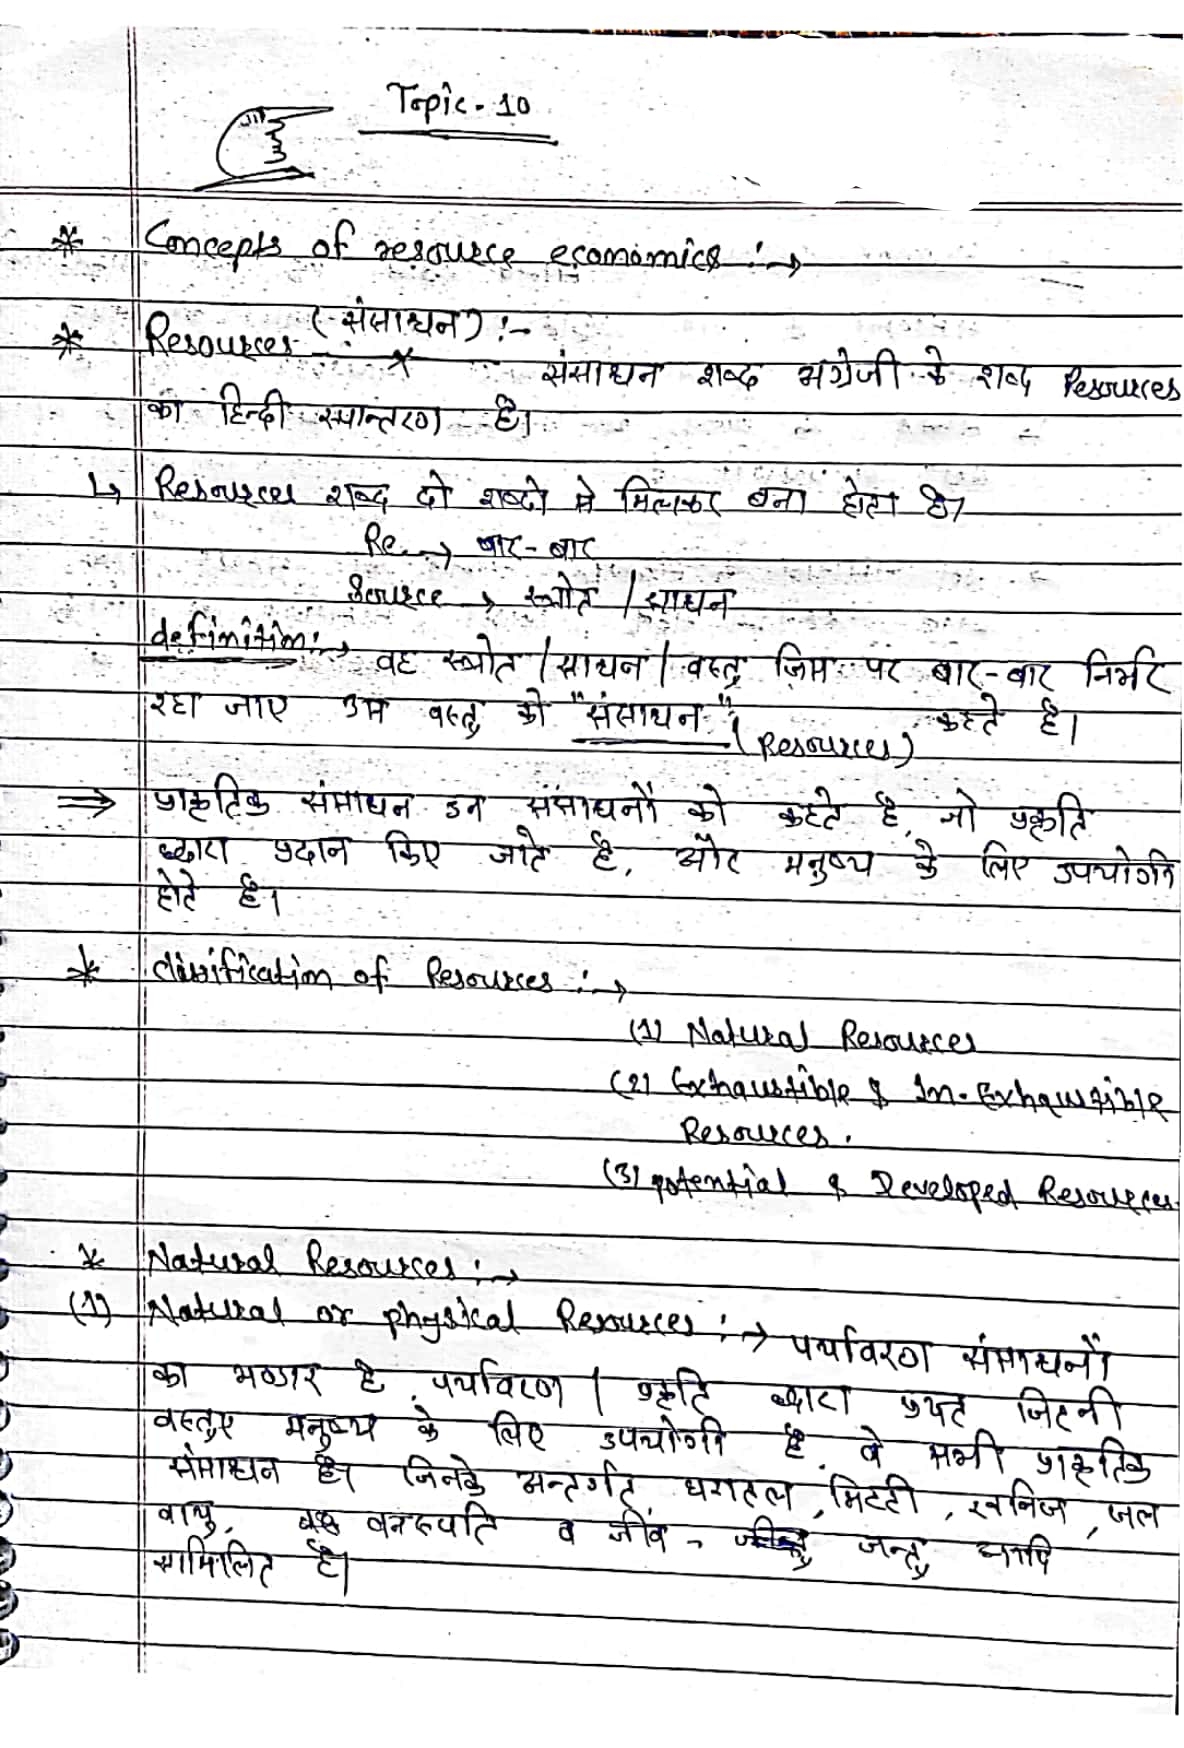 Topic - 10
* Concepts of resource economics :→
* Resources (संसाधन) :-
संसाधन शब्द अंग्रेजी के शब्द Resources
का हिन्दी रूपान्तरण है।
↳ Resources शब्द दो शब्दो से मिलकर बना होता है।
Re → बार-बार
Source → स्त्रोत / साधन
definition :→ वह स्त्रोत / साधन / वस्तु जिस पर बार-बार निर्भर
रहा जाए उस वस्तु को "संसाधन" (Resources) कहते है।
⇒ प्राकृतिक संसाधन उन संसाधनों को कहते है, जो प्रकृति
द्धारा प्रदान किए जाते है, और मनुष्य के लिए उपयोगी
होते है।
* Classification of Resources :→
(1) Natural Resources
(2) Exhaustible & In-Exhaustible
Resources.
(3) potential & Developed Resources.
* Natural Resources :→
(1) Natural or physical Resources :→ पर्यावरण संसाधनों
का भण्डार है, पर्यावरण / प्रकृति द्धारा जितनी
वस्तुए मनुष्य के लिए उपयोगी है, वे सभी प्राकृतिक
संसाधन है। जिनके अन्तर्गत, धरातल, मिटटी, खनिज, जल
वायु, वनस्पति व जीव - जन्तु आदि
सामिलित है।